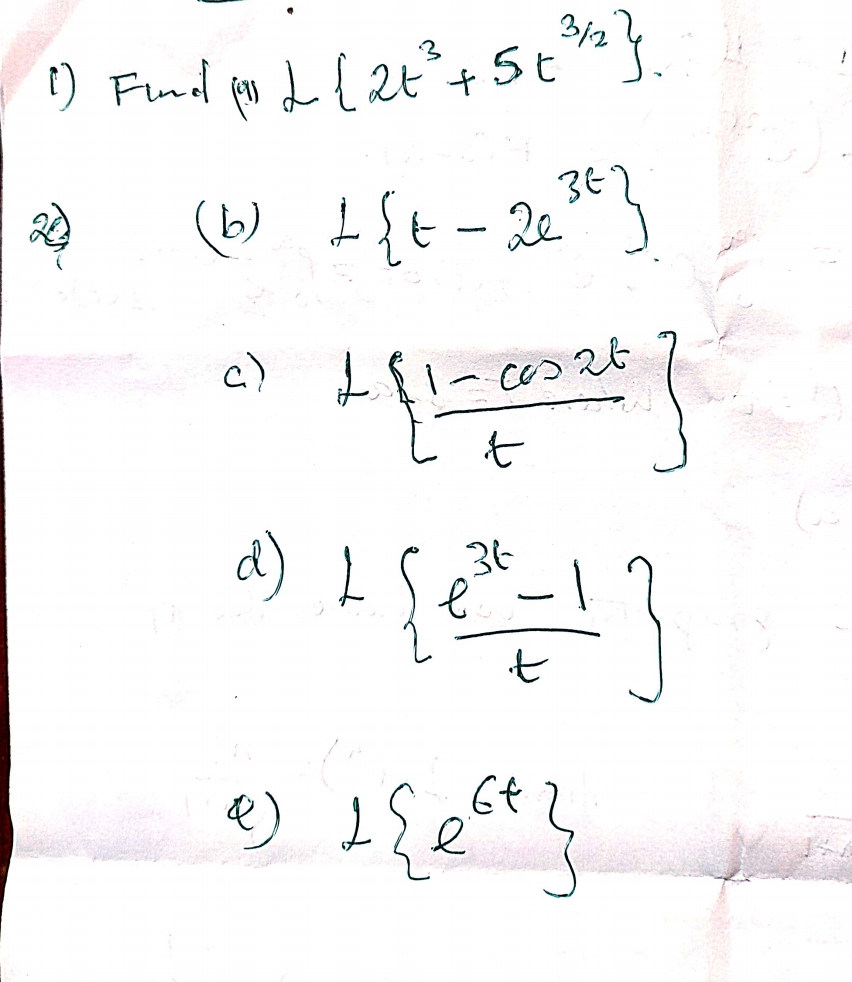 1) Find (a) L{2t³ + 5t^3/2}.
(b) L{t - 2e^3t}.
c) L{1 - cos 2t / t}
d) L{e^3t - 1 / t}
e) L{e^6t}